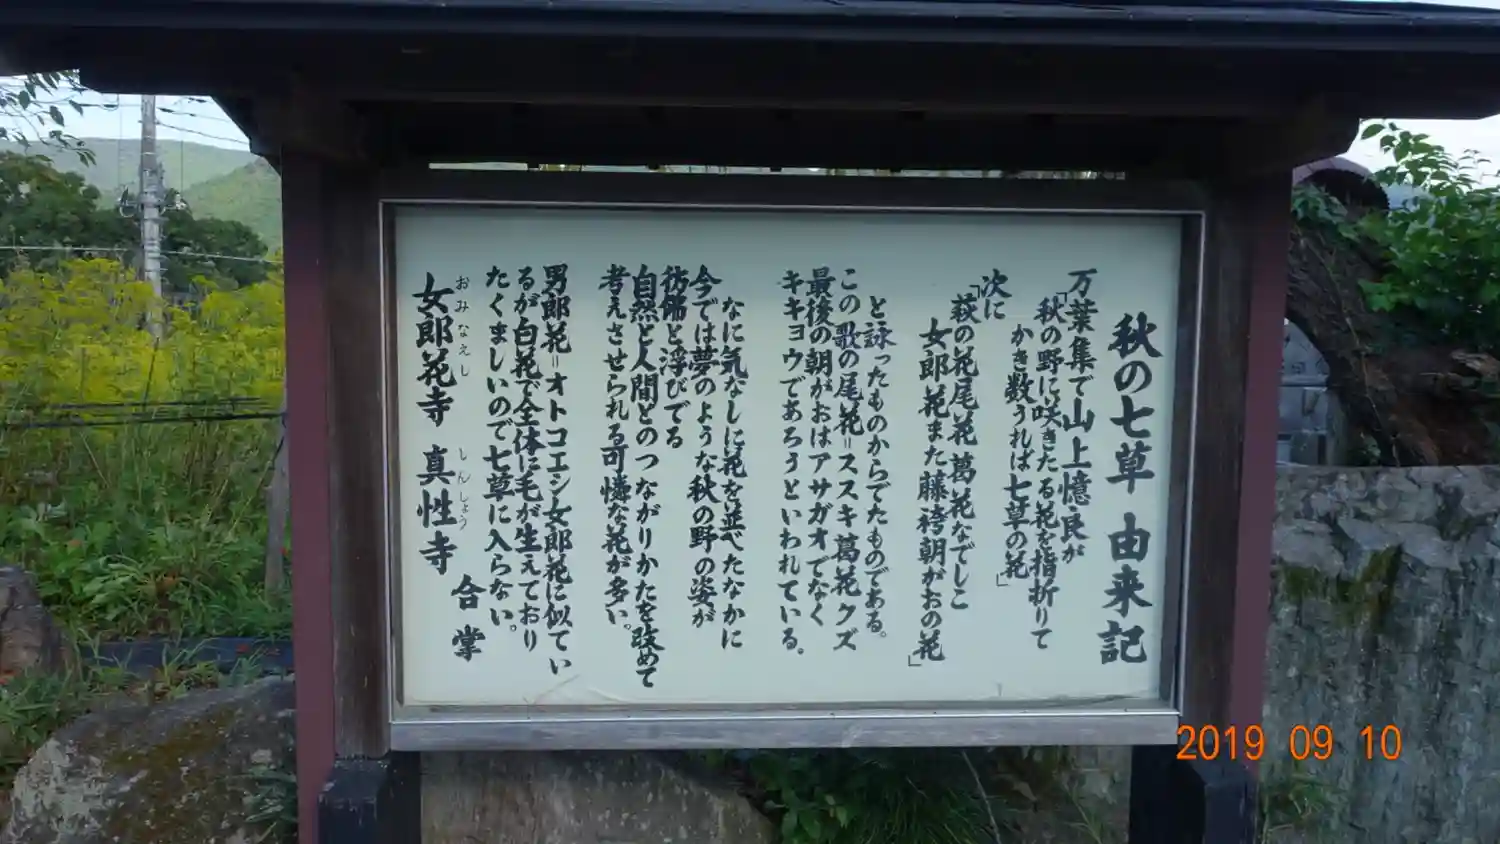 秋の七草 由来記
万葉集で山上憶良が
「秋の野に咲きたる花を指折りて
かき数うれば七草の花」
次に
「萩の花尾花葛花なでしこ
女郎花また藤袴朝がおの花」
と詠ったものからでたものである。
この歌の尾花=ススキ葛花クズ
最後の朝がおはアサガオでなく
キキョウであろうといわれている。
なに気なしに花を並べたなかに
今では夢のような秋の野の姿が
彷彿と浮びでる
自然と人間とのつながりかたを改めて
考えさせられる可憐な花が多い。
男郎花=オトコエシ女郎花に似てい
るが白花で全体に毛が生えており
たくましいので七草に入らない。
おみなえし しんしょう
女郎花寺 真性寺
合掌
2019 09 10